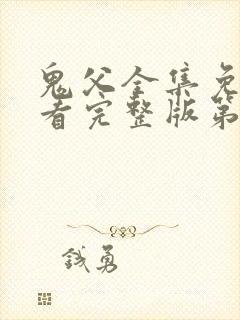 鬼父全集免
看完整版第
钱勇